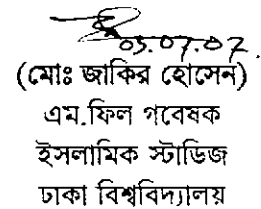 05.07.07.
(মোঃ জাকির হোসেন)
এম.ফিল গবেষক
ইসলামিক স্টাডিজ
ঢাকা বিশ্ববিদ্যালয়